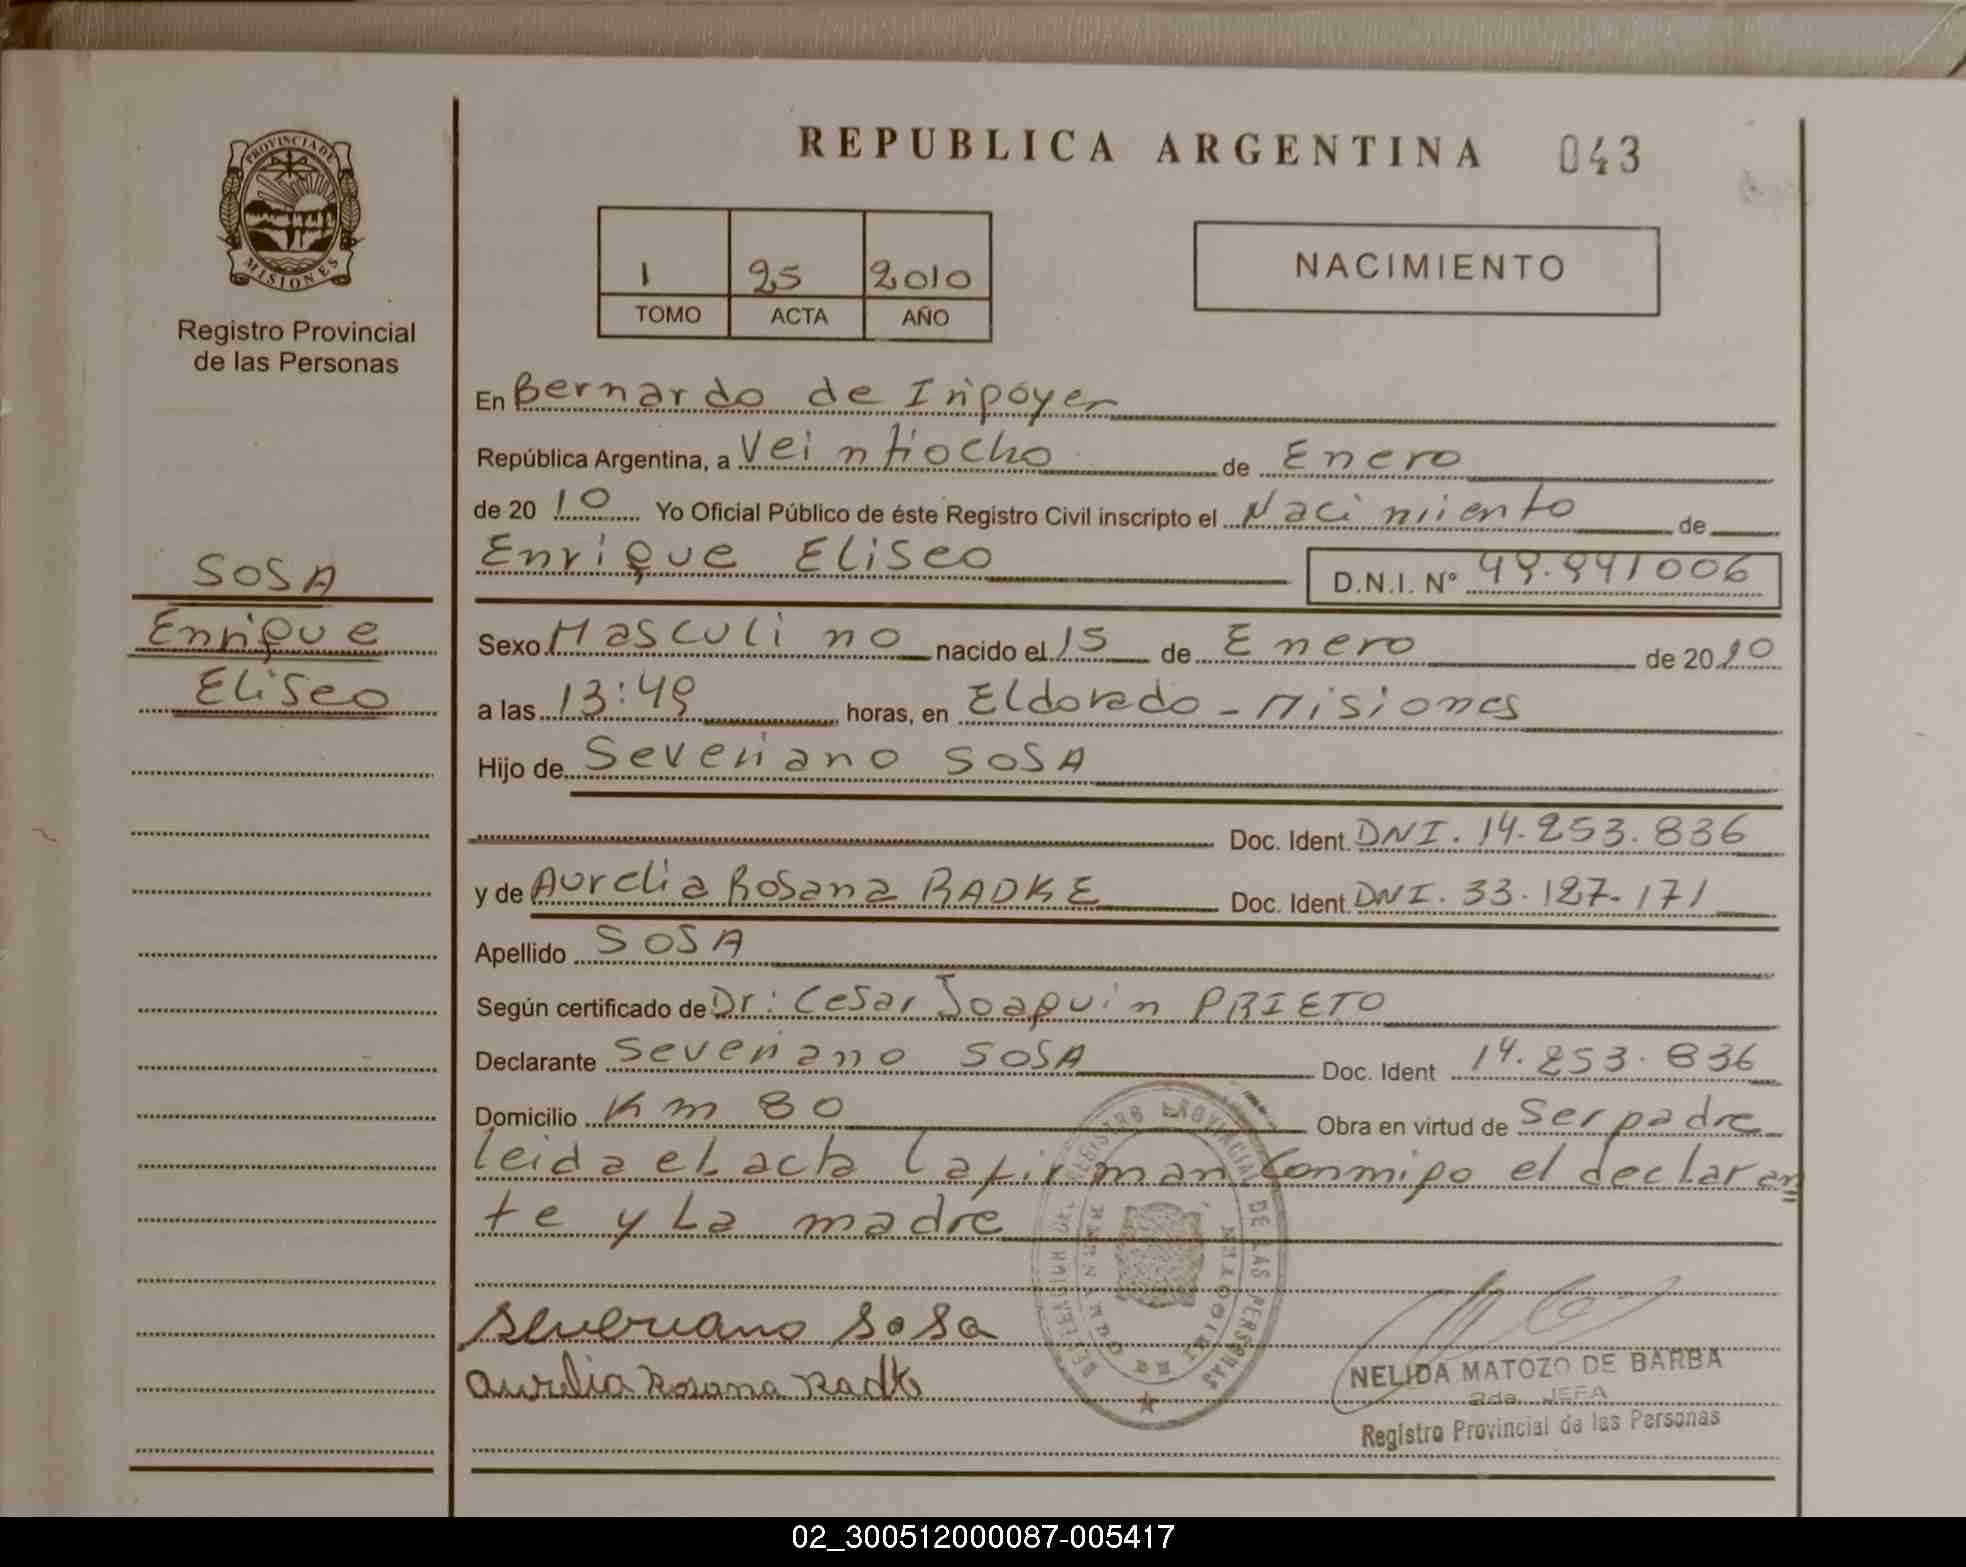 REPUBLICA ARGENTINA 043
PROVINCIA DE
MISIONES
Registro Provincial
de las Personas
1 25 2010
TOMO ACTA AÑO
NACIMIENTO
En Bernardo de Iripoyen
República Argentina, a Veintiocho de Enero
de 20 10 Yo Oficial Público de éste Registro Civil inscripto el Nacimiento de
Enrique Eliseo D.N.I. Nº 49.941006
SOSA
Enrique
Eliseo
Sexo Masculino nacido el 15 de Enero de 2010
a las 13:49 horas, en Eldorado - Misiones
Hijo de Severiano SOSA
Doc. Ident. DNI. 14.253.836
y de Aurelia Rosana RADKE Doc. Ident. DNI. 33.127.171
Apellido SOSA
Según certificado de Dr: Cesar Joaquin PRIETO
Declarante Severiano SOSA Doc. Ident 14.253.836
Domicilio Km 80 Obra en virtud de Ser padre
leida el acta la firman conmigo el declaran
te y la madre
Severiano Sosa
Aurelia Rosana Radke
REGISTRO PROVINCIAL DE LAS PERSONAS
MISIONES
NELIDA MATOZO DE BARBA
2da. JEFA
Registro Provincial de las Personas
02_300512000087-005417